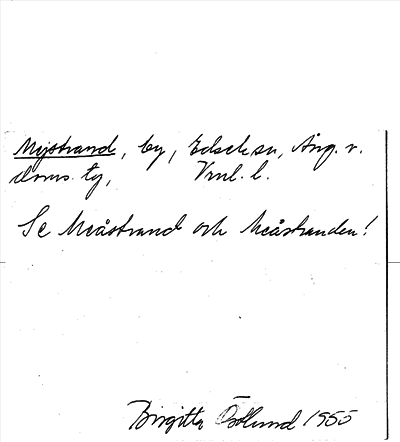 Mystrand, by, Eds sn, Äng. v.
doms. tg, Vrml. l.
Se Meåstrand och Meåstranden!
Birgitta Östlund 1955